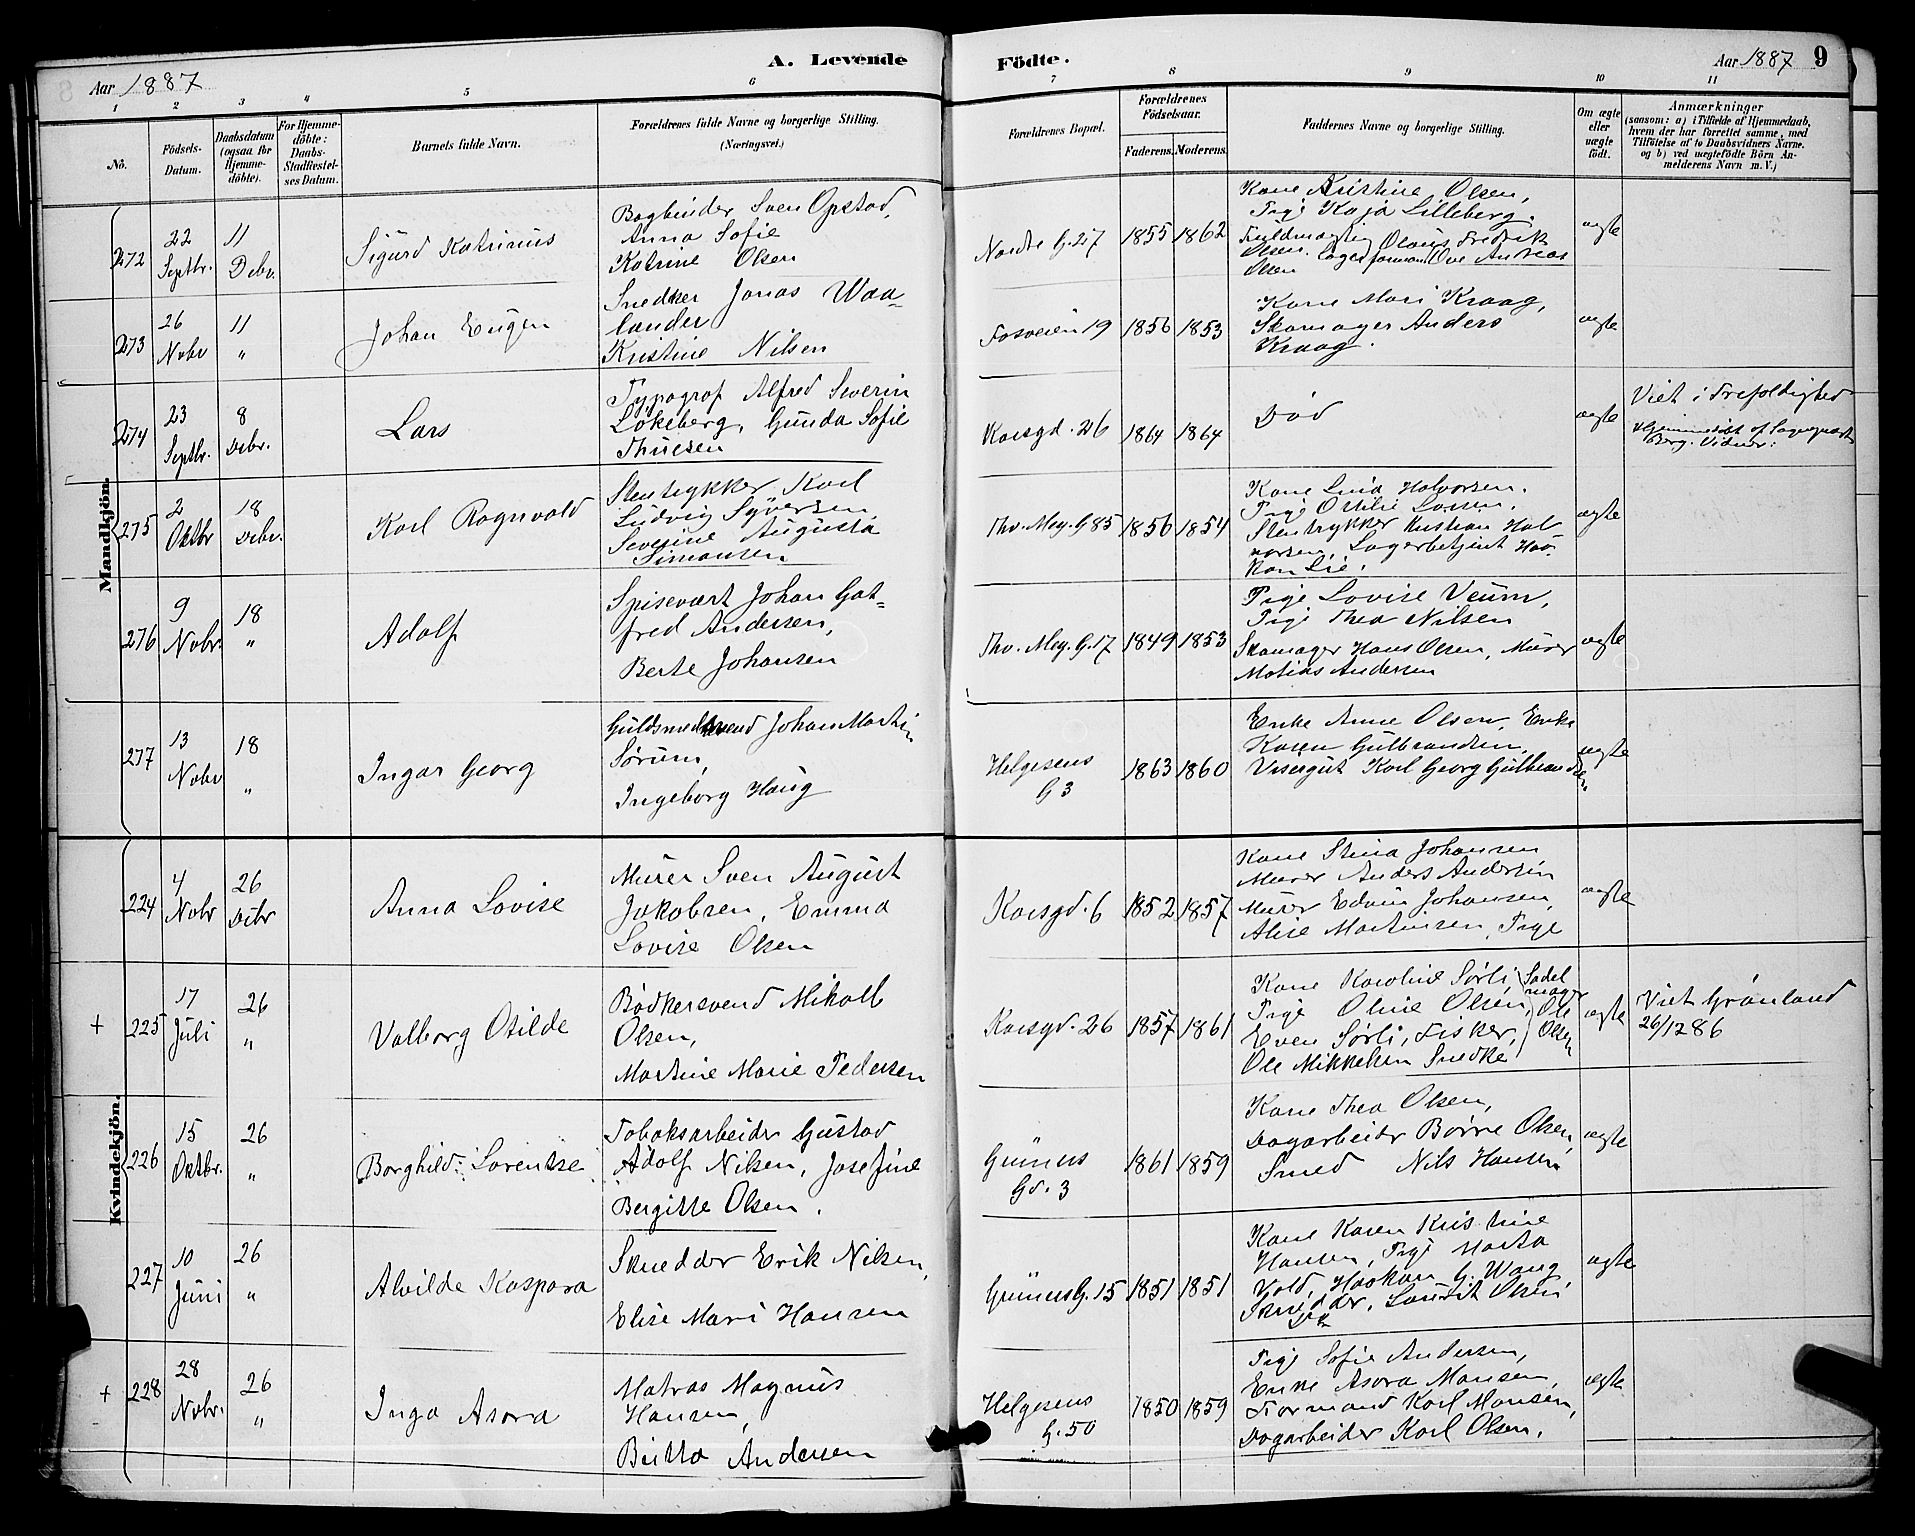 Aar 1887
A. Levende
Födte.
Aar 1887
9
1 2 3 4 5 6 7 8 9 10 11
No.
Födsels-
Datum.
Daabsdatum
(ogsaa for
Hjemme-
döbte).
For Hjemme-
döbte:
Daabs-
Stadfæstel-
ses Datum.
Barnets fulde Navn.
Forældrenes fulde Navne og borgerlige Stilling.
(Næringsvei.)
Forældrenes Bopæl.
Forældrenes
Födselsaar.
Faderens.
Moderens.
Faddernes Navne og borgerlige Stilling.
Om ægte
eller
uægte
födt.
Anmærkninger
(saasom: a) i Tilfælde af Hjemmedaab,
hvem der har forrettet samme, med
Tilföielse af to Daabsvidners Navne.
og b) ved uægtefödte Börn An-
melderens Navn m. V.)
Mandkjön.
272
22
Septbr.
11
Debr.
Sigurd Katrinus
Bogbinder Sven Opstad,
Anna Sofie
Katrine Olsen
Nordre G. 27
1855
1862
Kone Kristine Olsen,
Pige Kaja Lilleberg.
Fuldmægtig Olaus Fredrik
Olsen. Lagerformand Ove Andreas
Olsen
ægte
273
26
Nobr
11
"
Johan Eugen
Snedker Jonas Waa-
lander
Kristine Nilsen
Fosveien 19
1856
1853
Kone Mari Kraag,
Skomager Anders
Kraag.
ægte
274
23
Septbr.
8
Debr.
Lars
Typograf Alfred Severin
Løkeberg, Gunda Sofie
Thuesen
Korsgd. 26
1864
1864
Død
ægte
Viet i Trefoldighed
Hjemmedøbt af Sogneprest
Berg. Vidner:
275
2
Oktbr
18
Debr.
Karl Ragnvald
Stentrykker Karl
Ludvig Syversen
Severine Augusta
Simonsen
Thv. Mey. G 85
1856
1854
Kone Lina Halvorsen.
Pige Ottilie Larsen.
Stentrykker Kristian Hal
vorsen, Lagerbetjent Haa-
kon Lie.
ægte
276
9
Nobr.
18
"
Adolf
Spisevært Johan Got-
fred Andersen,
Berte Johansen
Thv. Mey. G. 17
1849
1853
Pige Lovise Veum,
Pige Thea Nilsen
Skomager Hans Olsen, Murer
Matias Andersen
ægte
277
13
Nobr
18
"
Ingar Georg
Guldsmedsvend Johan Martin
Sørum,
Ingeborg Haug
Helgesens
G 3
1863
1860
Enke Anne Olsen, Enke
Karen Gulbrandsen,
Visergut Karl Georg Gulbrandsen
ægte
Kvindekjön.
224
4
Nobr
26
Debr
Anna Lovise
Murer Sven August
Jakobsen, Emma
Lovise Olsen
Korsgd. 6
1852
1857
Kone Stina Johansen
Murer Anders Andersen
Murer Edvin Johansen,
Alise Martinsen, Pige
ægte
+
225
17
Juli
26
"
Valborg Otilde
Bødkersvend Mikall
Olsen,
Martine Marie Pedersen
Korsgd. 26
1857
1861
Kone Karoline Sørli,
Pige Oline Olsen,
Even Sørli, Fisker,
Ole Mikkelsen Snedke
Sadel
mager
Ole
Olsen
ægte
Viet Grønland
26/12 86
226
15
Oktbr.
26
"
Borghild Lorentse
Tobaksarbeider Gustav
Adolf Nilsen, Josefine
Bergitte Olsen.
Gruners
Gd. 3
1861
1859
Kone Thea Olsen,
Dagarbeidr Børre Olsen,
Smed Nils Hansen
ægte
227
10
Juni
26
"
Alvilde Kaspara
Skredder Erik Nilsen,
Elise Mari Hansen
Gruners G. 15
1851
1851
Kone Karen Kristine
Hansen, Pige Marta
Vold, Haakon G. Wang,
Skredder, Lauritz Olsen
Do
ægte
+
228
28
Nobr.
26
"
Inga Asora
Matros Magnus
Hansen,
Britta Andersen
Helgesens
G. 50
1850
1859
Pige Sofie Andersen,
Enke Asora Monsen,
Formand Karl Monsen,
Dagarbeider Karl Olsen.
ægte